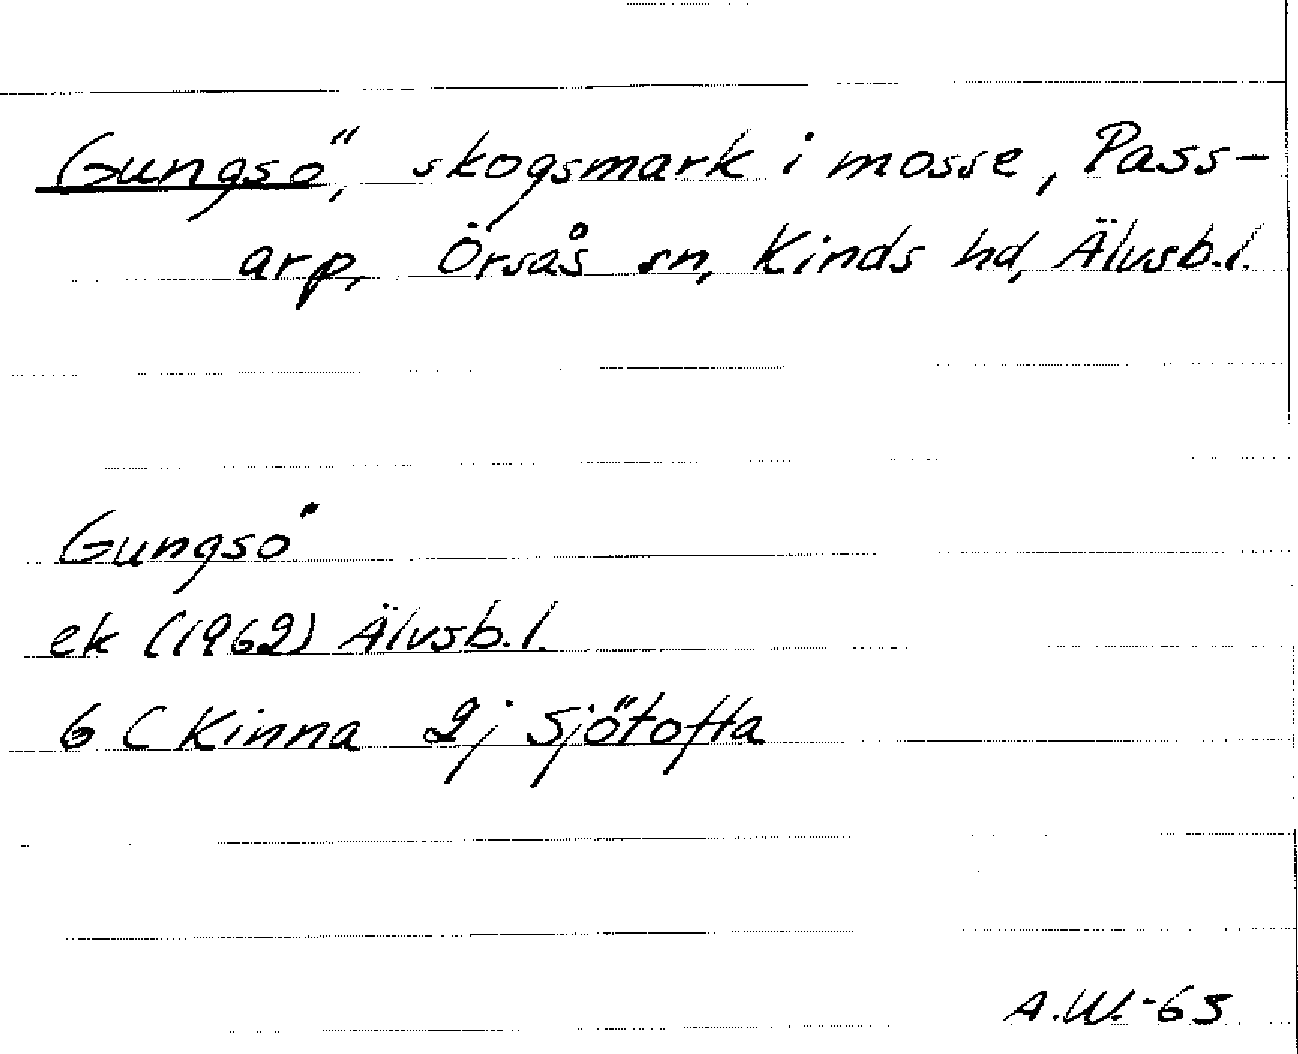 Gungsö, skogsmark i mosse, Pass-
arp, Örsås sn, Kinds hd, Älvsb.l.
Gungsö
ek (1962) Älvsb.l.
6 C Kinna 2j Sjötofta
A.W.-65